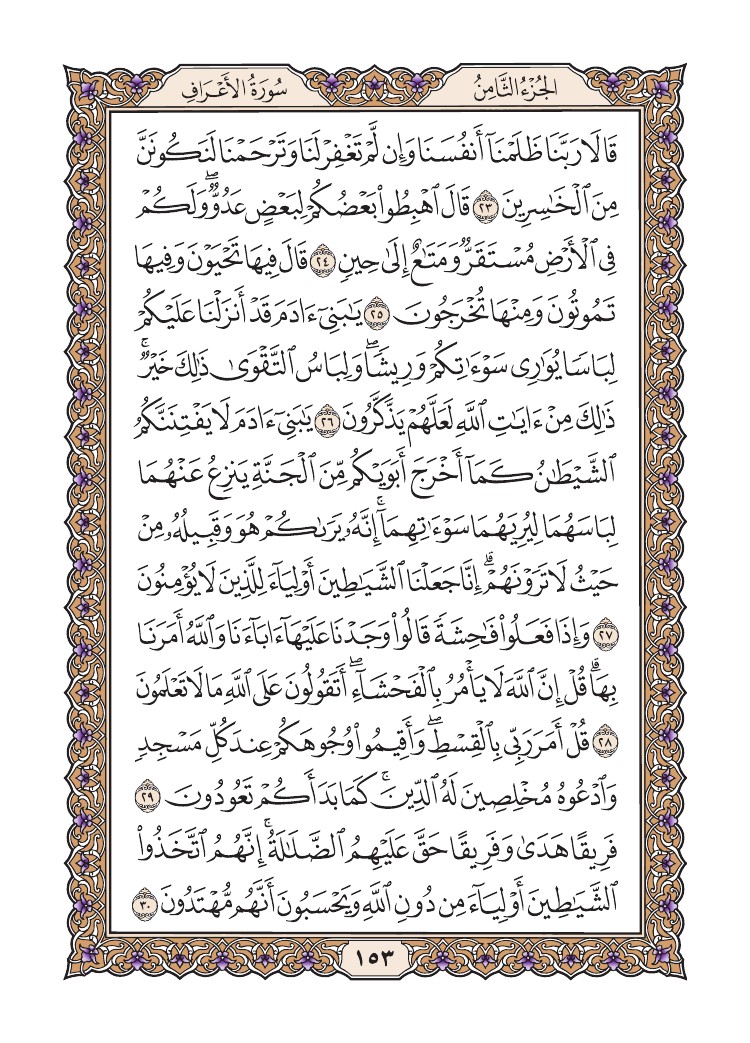 الجُزْءُ الثَّامِنُ
سُورَةُ الأَعْرَافِ
قَالَا رَبَّنَا ظَلَمْنَآ أَنفُسَنَا وَإِن لَّمْ تَغْفِرْ لَنَا وَتَرْحَمْنَا لَنَكُونَنَّ
مِنَ ٱلْخَٰسِرِينَ ٢٣ قَالَ ٱهْبِطُوا۟ بَعْضُكُمْ لِبَعْضٍ عَدُوٌّ ۖ وَلَكُمْ
فِى ٱلْأَرْضِ مُسْتَقَرٌّ وَمَتَٰعٌ إِلَىٰ حِينٍ ٢٤ قَالَ فِيهَا تَحْيَوْنَ وَفِيهَا
تَمُوتُونَ وَمِنْهَا تُخْرَجُونَ ٢٥ يَٰبَنِىٓ ءَادَمَ قَدْ أَنزَلْنَا عَلَيْكُمْ
لِبَاسًا يُوَٰرِى سَوْءَٰتِكُمْ وَرِيشًا ۖ وَلِبَاسُ ٱلتَّقْوَىٰ ذَٰلِكَ خَيْرٌ ۚ
ذَٰلِكَ مِنْ ءَايَٰتِ ٱللَّهِ لَعَلَّهُمْ يَذَّكَّرُونَ ٢٦ يَٰبَنِىٓ ءَادَمَ لَا يَفْتِنَنَّكُمُ
ٱلشَّيْطَٰنُ كَمَآ أَخْرَجَ أَبَوَيْكُم مِّنَ ٱلْجَنَّةِ يَنزِعُ عَنْهُمَا
لِبَاسَهُمَا لِيُرِيَهُمَا سَوْءَٰتِهِمَآ ۚ إِنَّهُۥ يَرَىٰكُمْ هُوَ وَقَبِيلُهُۥ مِنْ
حَيْثُ لَا تَرَوْنَهُمْ ۗ إِنَّا جَعَلْنَا ٱلشَّيَٰطِينَ أَوْلِيَآءَ لِلَّذِينَ لَا يُؤْمِنُونَ
٢٧ وَإِذَا فَعَلُوا۟ فَٰحِشَةً قَالُوا۟ وَجَدْنَا عَلَيْهَآ ءَابَآءَنَا وَٱللَّهُ أَمَرَنَا
بِهَا ۗ قُلْ إِنَّ ٱللَّهَ لَا يَأْمُرُ بِٱلْفَحْشَآءِ ۖ أَتَقُولُونَ عَلَى ٱللَّهِ مَا لَا تَعْلَمُونَ
٢٨ قُلْ أَمَرَ رَبِّى بِٱلْقِسْطِ ۖ وَأَقِيمُوا۟ وُجُوهَكُمْ عِندَ كُلِّ مَسْجِدٍ
وَٱدْعُوهُ مُخْلِصِينَ لَهُ ٱلدِّينَ ۚ كَمَا بَدَأَكُمْ تَعُودُونَ ٢٩
فَرِيقًا هَدَىٰ وَفَرِيقًا حَقَّ عَلَيْهِمُ ٱلضَّلَٰلَةُ ۗ إِنَّهُمُ ٱتَّخَذُوا۟
ٱلشَّيَٰطِينَ أَوْلِيَآءَ مِن دُونِ ٱللَّهِ وَيَحْسَبُونَ أَنَّهُم مُّهْتَدُونَ ٣٠
١٥٣